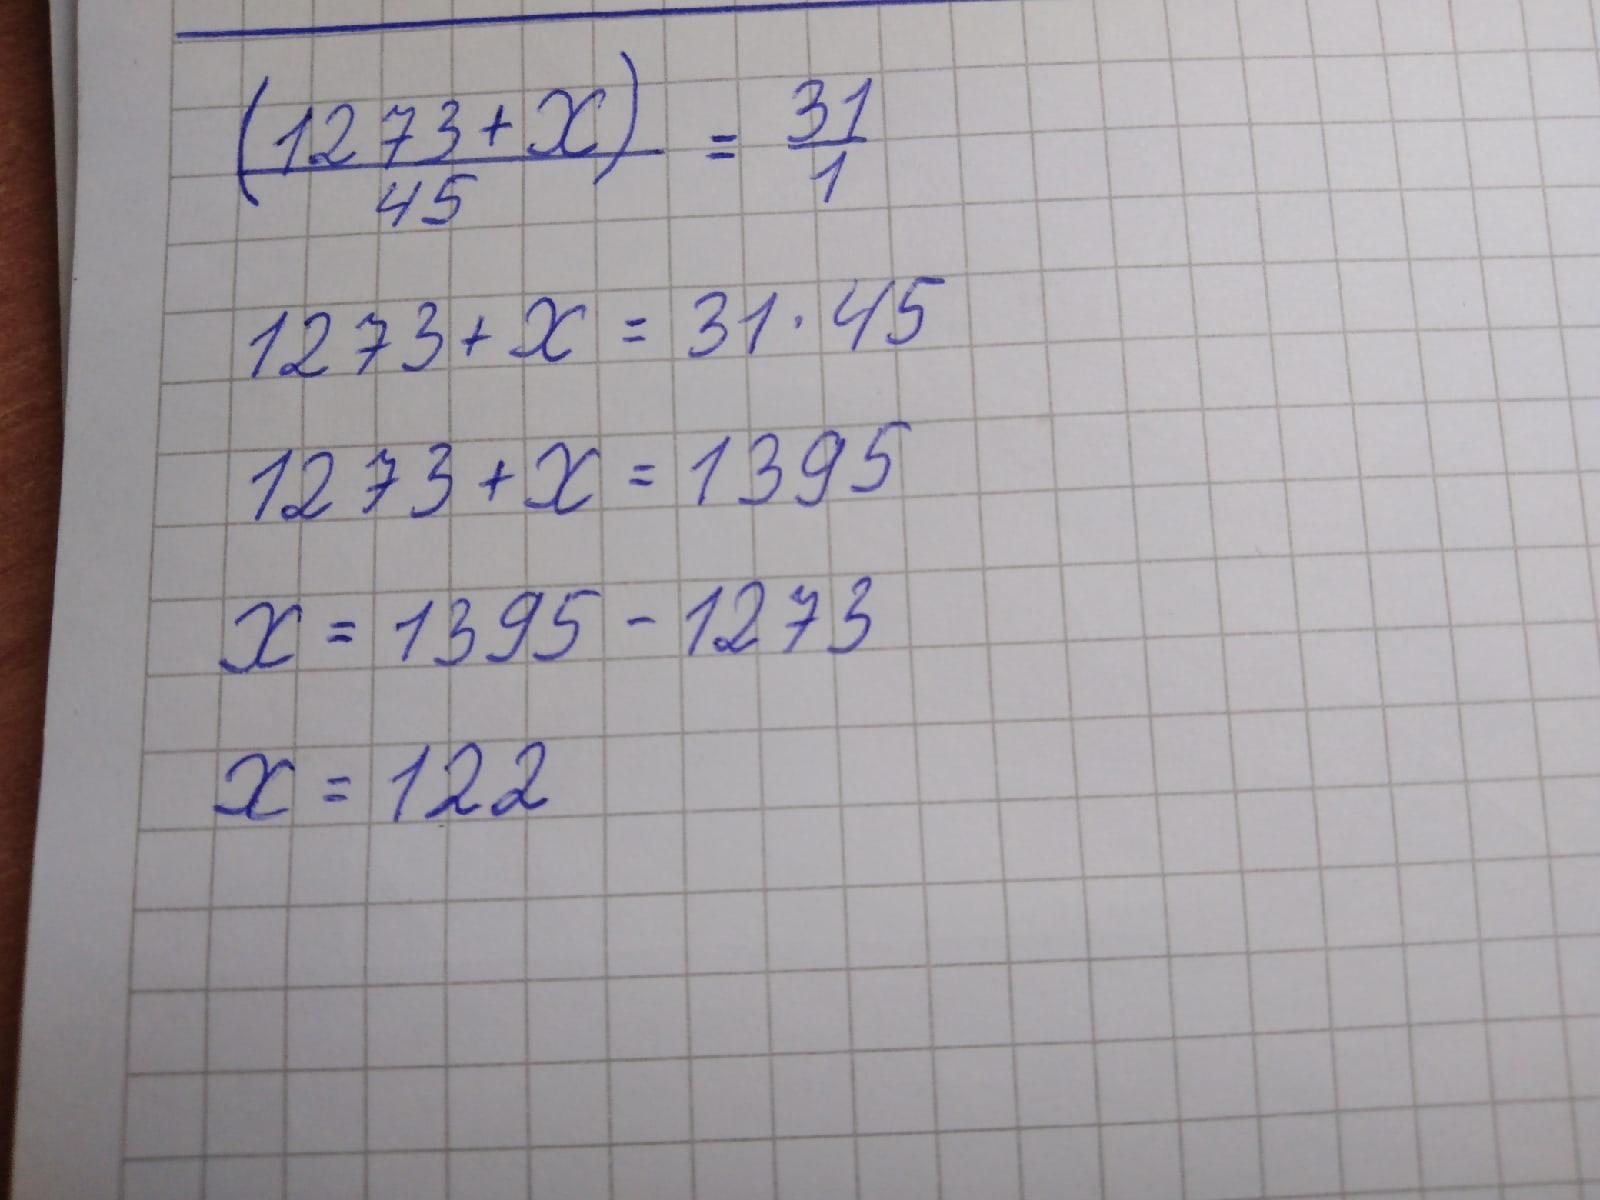 (1273 + x) / 45 = 31 / 1
1273 + x = 31 · 45
1273 + x = 1395
x = 1395 - 1273
x = 122